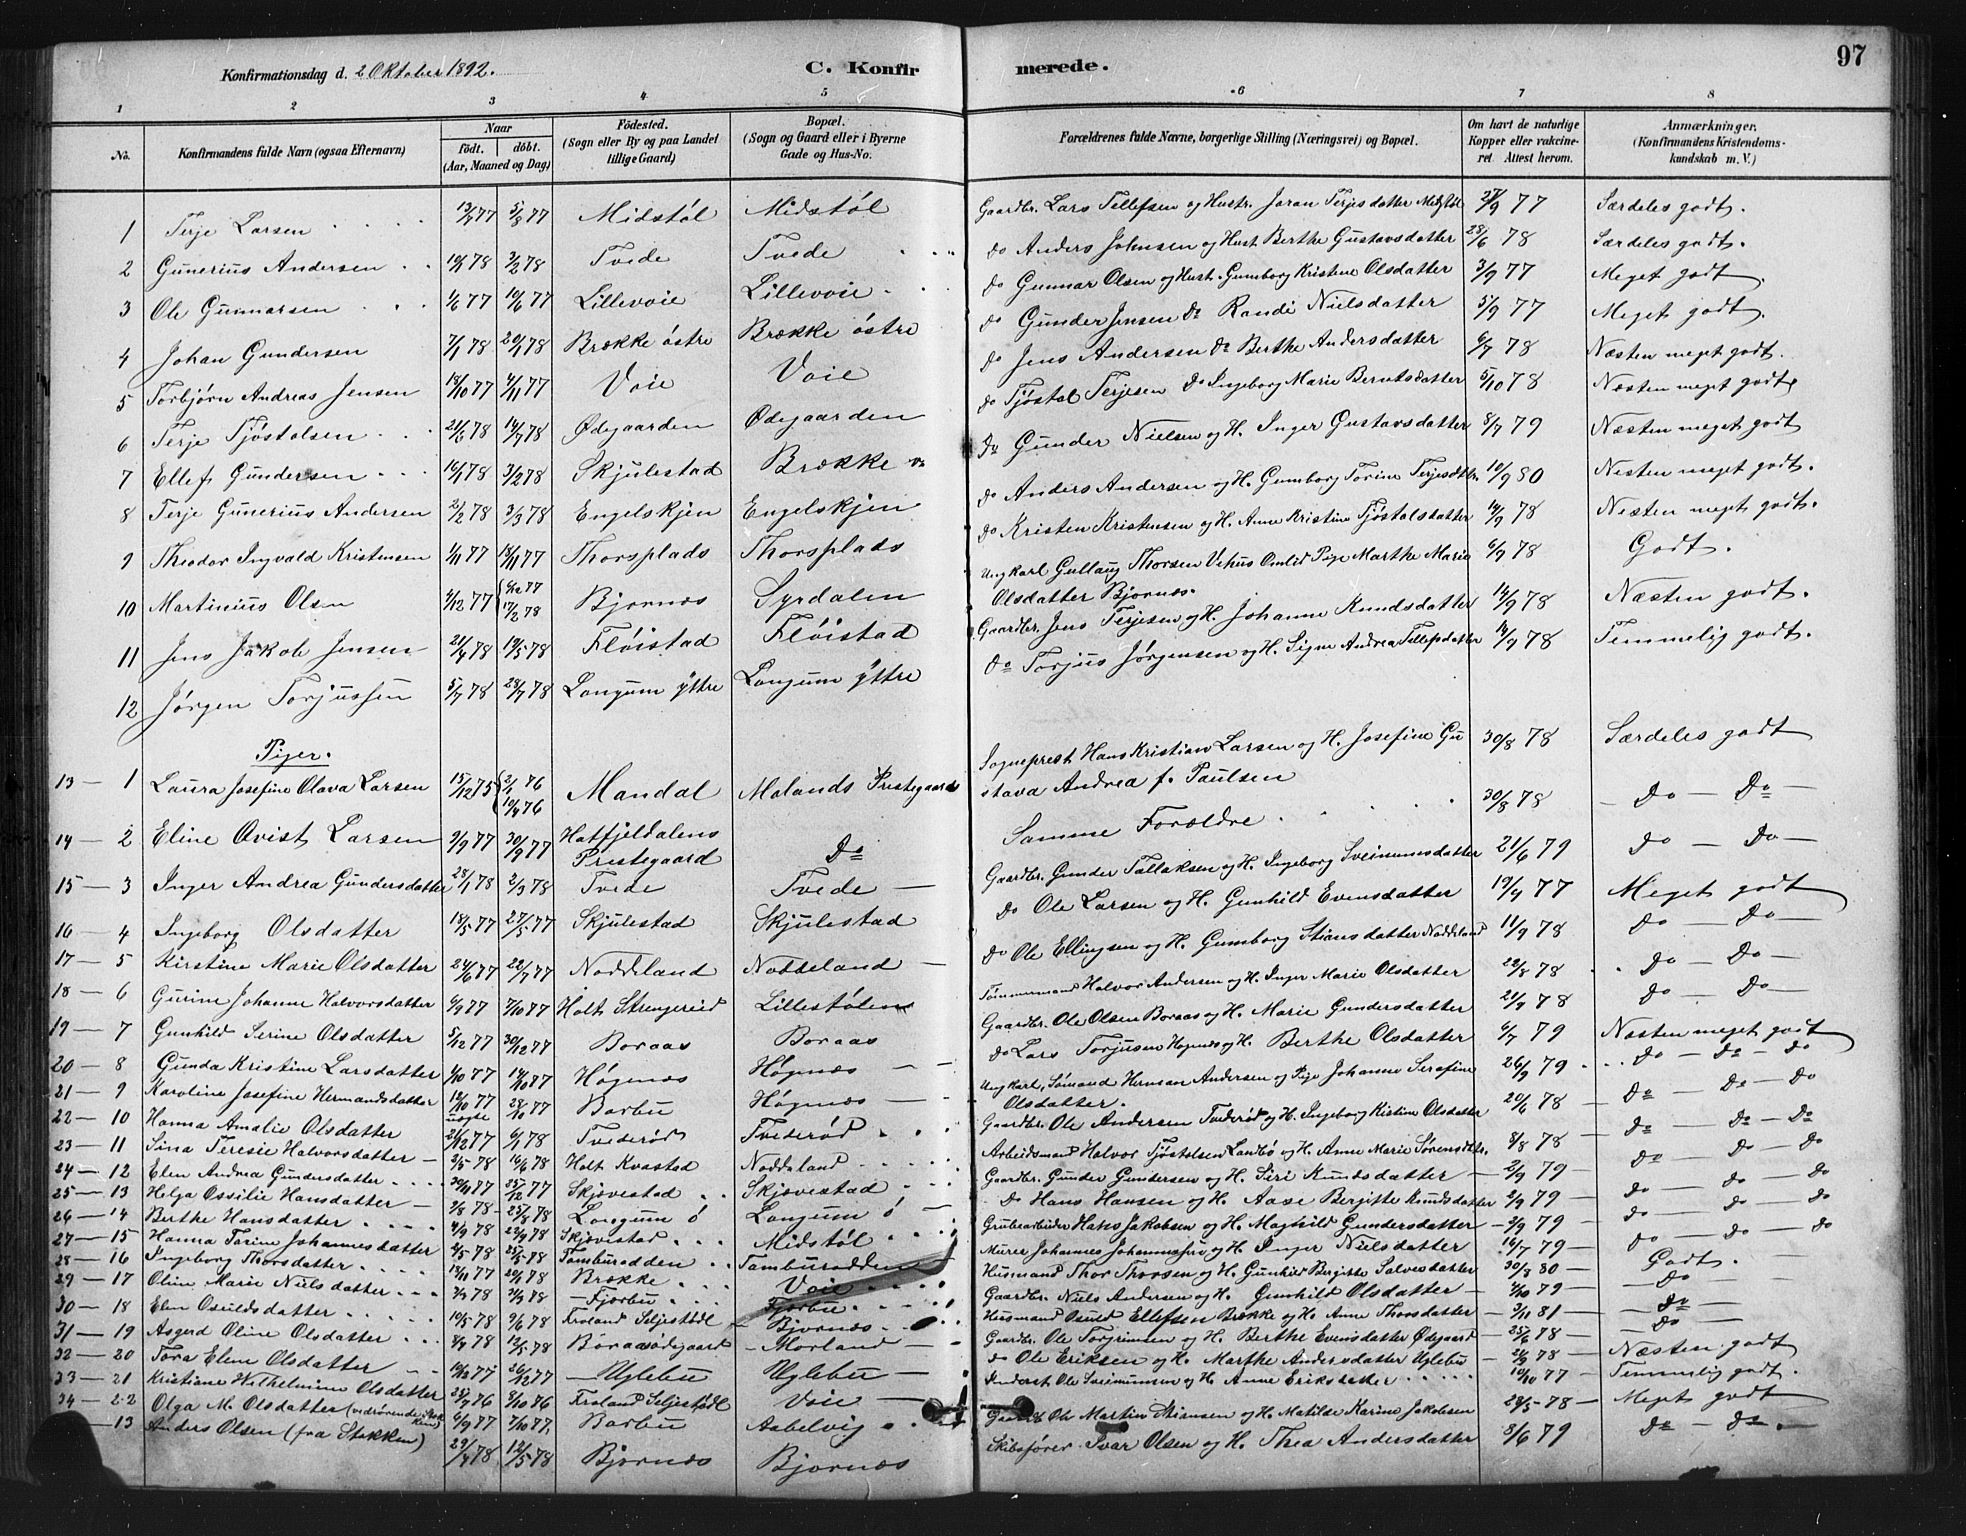 Konfirmationsdag d. 2 Oktober 1892.
C. Konfirmerede.
97
1 2 3 4 5 6 7 8
No. Konfirmandens fulde Navn (ogsaa Efternavn) Naar födt. döbt. (Aar, Maaned og Dag) Födested. (Sogn eller By og paa Landet tillige Gaard) Bopæl. (Sogn og Gaard eller i Byerne Gade og Hus-No. Forældrenes fulde Navne, borgerlige Stilling (Næringsvei) og Bopæl. Om havt de naturlige Kopper eller vakcineret. Attest herom. Anmærkninger. (Konfirmandens Kristendomskundskab m. V.)
1 Terje Larsen 13/7 77 5/8 77 Midstøl Midstøl Gaardbr. Lars Tellefsen og Hustr. Joran Terjesdatter Midstøl 27/9 77 Særdeles godt.
2 Gunerius Andersen 10/1 78 3/2 78 Tvede Tvede Do Anders Johnsen og Hust. Berthe Gustavsdatter 28/6 78 Særdeles godt.
3 Ole Gunnarsen 1/6 77 10/6 77 Lillevoie Lillevoie Do Gunnar Olsen og Hust. Gunborg Kristine Olsdatter 3/9 77 Meget godt
4 Johan Gundersen 7/1 78 20/1 78 Brække østre Brække østre Do Gunder Jensen Do Randi Nielsdatter 5/9 77 Meget godt.
5 Torbjørn Andreas Jensen 18/10 77 4/11 77 Voie Voie Do Jens Andersen Do Berthe Andersdatter 6/7 78 Næsten meget godt.
6 Terje Tjøstolsen 21/6 78 14/7 78 Ødegaarden Ødegaarden Do Tjøstol Terjesen Do Ingeborg Marie Berntsdatter 5/10 78 Næsten meget godt
7 Ellef Gundersen 16/1 78 3/2 78 Skjulestad Brække v. Do Gunder Nielsen og H. Inger Gustavsdatter 8/7 79 Næsten meget godt
8 Terje Gunerius Andersen 2/2 78 3/3 78 Engelskjen Engelskjen Do Anders Andersen og H. Gunborg Torine Terjesdtr. 10/9 80 Næsten meget godt.
9 Theodor Ingvald Kristensen 1/11 77 18/11 77 Thorsplads Thorsplads Do Kristen Kristensen og H. Anne Kristine Tjøstolsdatter 14/9 78 Næsten meget godt.
10 Martinius Olsen 4/12 77 6/12 77 17/2 78 Bjornæs Syrdalen Ungkarl Gullaug Thorsen Vehus Omlid Pige Marthe Maria Olsdatter Bjornæs. 6/9 78 Godt.
11 Jens Jakob Jensen 21/4 78 19/5 78 Fløistad Fløistad Gaardbr. Jens Terjesen og H. Johanne Knudsdatter 14/9 78 Næsten godt.
12 Jørgen Torjussen 5/7 78 28/7 78 Longum yttre Longum yttre Do Torjus Jørgensen og H. Signe Andrea Tellefsdatter 14/9 78 Temmelig godt.
Piger.
13 — 1 Laura Josefine Olava Larsen 15/12 75 2/1 76 Mandal Molands Prestegaard Sogneprest Hans Kristian Larsen og H. Josefine Gustava Andrea f. Paulsen 30/8 78 Særdeles godt
14 — 2 Eline Qvist Larsen 9/9 77 30/9 77 Hatfjeldalens Prestegaard Do Samme Forældre 30/8 78 — Do — Do —
15 — 3 Inger Andrea Gundersdatter 28/1 78 2/3 78 Tvede Tvede — Gaardbr. Gunder Tallaksen og H. Ingeborg Sveinumsdatter 21/6 79 Do — Do —
16 — 4 Ingeborg Olsdatter 18/5 77 27/5 77 Skjulestad Skjulestad Do Ole Larsen og H. Gunhild Evensdatter 19/4 77 Meget godt
17 — 5 Kirstine Marie Olsdatter 24/6 77 22/7 77 Noddeland Noddeland — Do Ole Ellingsen og H. Gunborg Stiansdatter Noddeland 11/9 78 Do — Do —
18 — 6 Gurine Johanne Halvorsdatter 6/9 77 7/10 77 Holt Strengereid Lillestølen Tømmermand Halvor Andersen og H. Inger Marie Olsdatter 22/8 78 Do — Do —
19 — 7 Gunhild Serine Olsdatter 5/12 77 30/12 77 Boraas Boraas Gaardbr. Ole Olsen Boraas og H. Marie Gundersdatter 21/9 78 Do — Do —
20 — 8 Gunda Kristine Larsdatter 1/10 77 14/10 77 Høgnæs Høgnæs — Do Lars Torjusen Høgnæs og H. Berthe Olsdatter 6/7 79 Næsten meget godt
21 — 9 Karoline Josefine Hermandsdatter 12/10 77 uægte 28/10 77 Barbu Høgnæs — Ungkarl, Sømand Herman Andersen og Pige Johanne Serafine Olsdatter. 26/9 79 Do — Do — Do
22 — 10 Hanna Amalie Olsdatter 21/12 77 6/1 78 Tviterød Tviterød Gaardbr. Ole Andersen Tviterød og H. Ingeborg Kistine Olsdatter 20/6 78 Do — Do — Do
23 — 11 Sina Teresie Halvorsdatter — 2/5 78 16/6 78 Holt Kvastad Noddeland Arbeidsmand Halvor Tjøstolsen Landbø og H. Anne Marie Sørensdtr. 8/8 78 Do — Do — Do
24 — 12 Elen Andrea Gundersdatter 30/11 77 25/12 77 Skjævestad Skjævestad Gaardbr. Gunder Gundersen og H. Siri Knudsdatter 2/9 79 Do — Do — Do
25 — 13 Helga Ossilie Hansdatter — 25/8 78 Longum ø Longum ø — Do Hans Hansen og H. Aase Bergitte Knudsdatter 2/9 79 Do — Do — Do
26 — 14 Berthe Hansdatter 4/9 78 22/9 78 Skjævestad Midstøl Grubearbeider Hans Jakobsen og H. Maghild Gundersdatter — 2/9 79 — Do — Do — Do
27 — 15 Hanna Torine Johannesdatter 4/5 78 Tomburodden Tomburodden Murer Johannes Johannessen og H. Inger Nielsdatter 16/7 79 — Do — Do — Do
28 — 16 Ingeborg Thorsdatter 18/11 77 20/1 78 Brække Voie Husmand Thor Thorsen og H. Gunhild Bergitte Salvesdatter 30/8 80 — Godt.
29 — 17 Oline Marie Nielsdatter — Fjorbu Fjorbu Gaardbr. Niels Andersen og H. Gunhild Olsdatter — Do —
30 — 18 Elen Osuldsdatter 19/5 78 9/6 78 Froland Seljestødl Bjornæs Husmand Osuld Ellefsen Brække og H. Anne Thorsdatter 3/11 81 — Do —
31 — 19 Asgerd Oline Olsdatter 12/5 78 Boraasødegaard — Morland — Gaardbr. Ole Torgrimsen og H. Berthe Evensdatter Ødegaard — 25/6 78 — Do —
32 — 20 Tora Elene Olsdatter 10/12 77 26/12 77 — Uglebu Uglebu — Do Ole Eriksen og H. Marthe Andersdatter Uglebu — 21/9 78 — Næsten godt
33 — 21 Kristiane Wilhelmine Olsdatter 25/7 76 8/10 76 Froland Seljestødl Voie — Inderst Ole Sveinumsen og H. Anne Eriksdatter 10/10 77 — Temmelig godt.
34 — 22 Olga M. Olsdatter 6/9 77 7/10 77 Barbu Aabelvig Ole Martin Stiansen og H. Matilde Karine Jakobsen 28/5 78 — Meget godt
— 13 Anders Olsen (fra Stokken) 29/4 78 12/5 78 Bjornæs Bjornæs Skibsfører Ivar Olsen og H. Thea Andersdatter 8/6 79 Do — Do —